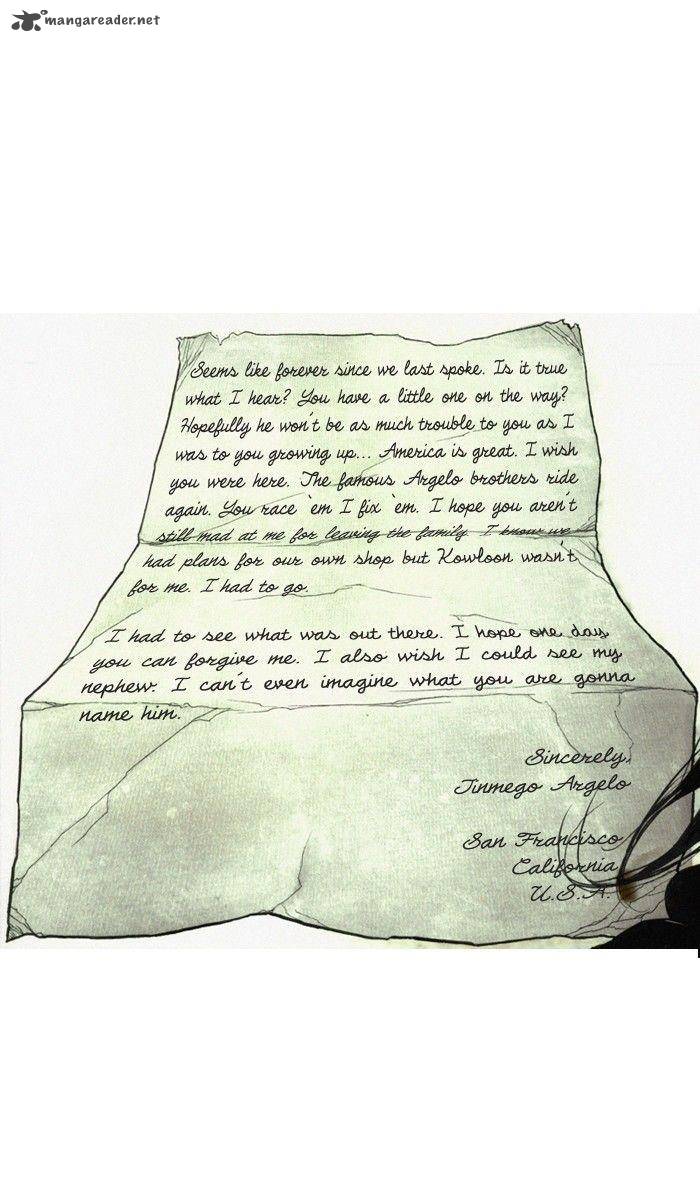 mangareader.net
Seems like forever since we last spoke. Is it true
what I hear? You have a little one on the way?
Hopefully he won't be as much trouble to you as I
was to you growing up... America is great. I wish
you were here. The famous Argelo brothers ride
again. You race `em I fix `em. I hope you aren't
still mad at me for leaving the family. I know we
had plans for our own shop but Kowloon wasn't
for me. I had to go.
I had to see what was out there. I hope one day
you can forgive me. I also wish I could see my
nephew. I can't even imagine what you are gonna
name him.
Sincerely,
Jinmego Argelo
San Francisco
California
U.S.A.